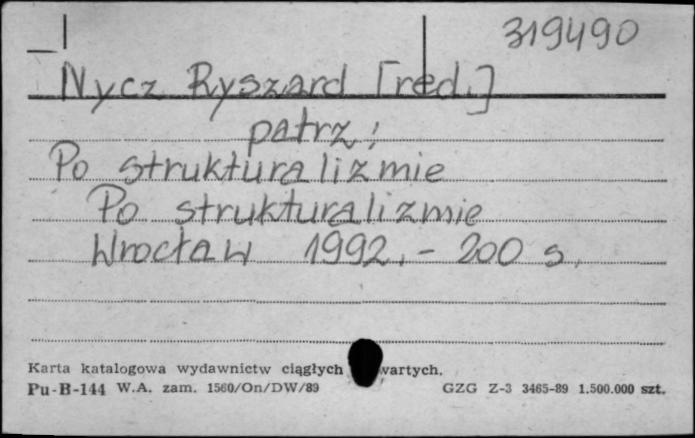 319490
Nycz Ryszard [red.]
patrz:
Po strukturalizmie
Po strukturalizmie
Wrocław 1992.- 200 s.
Karta katalogowa wydawnictw ciągłych wartych.
Pu-B-144 W.A. zam. 1560/On/DW/89 GZG Z-3 3465-89 1.500.000 szt.